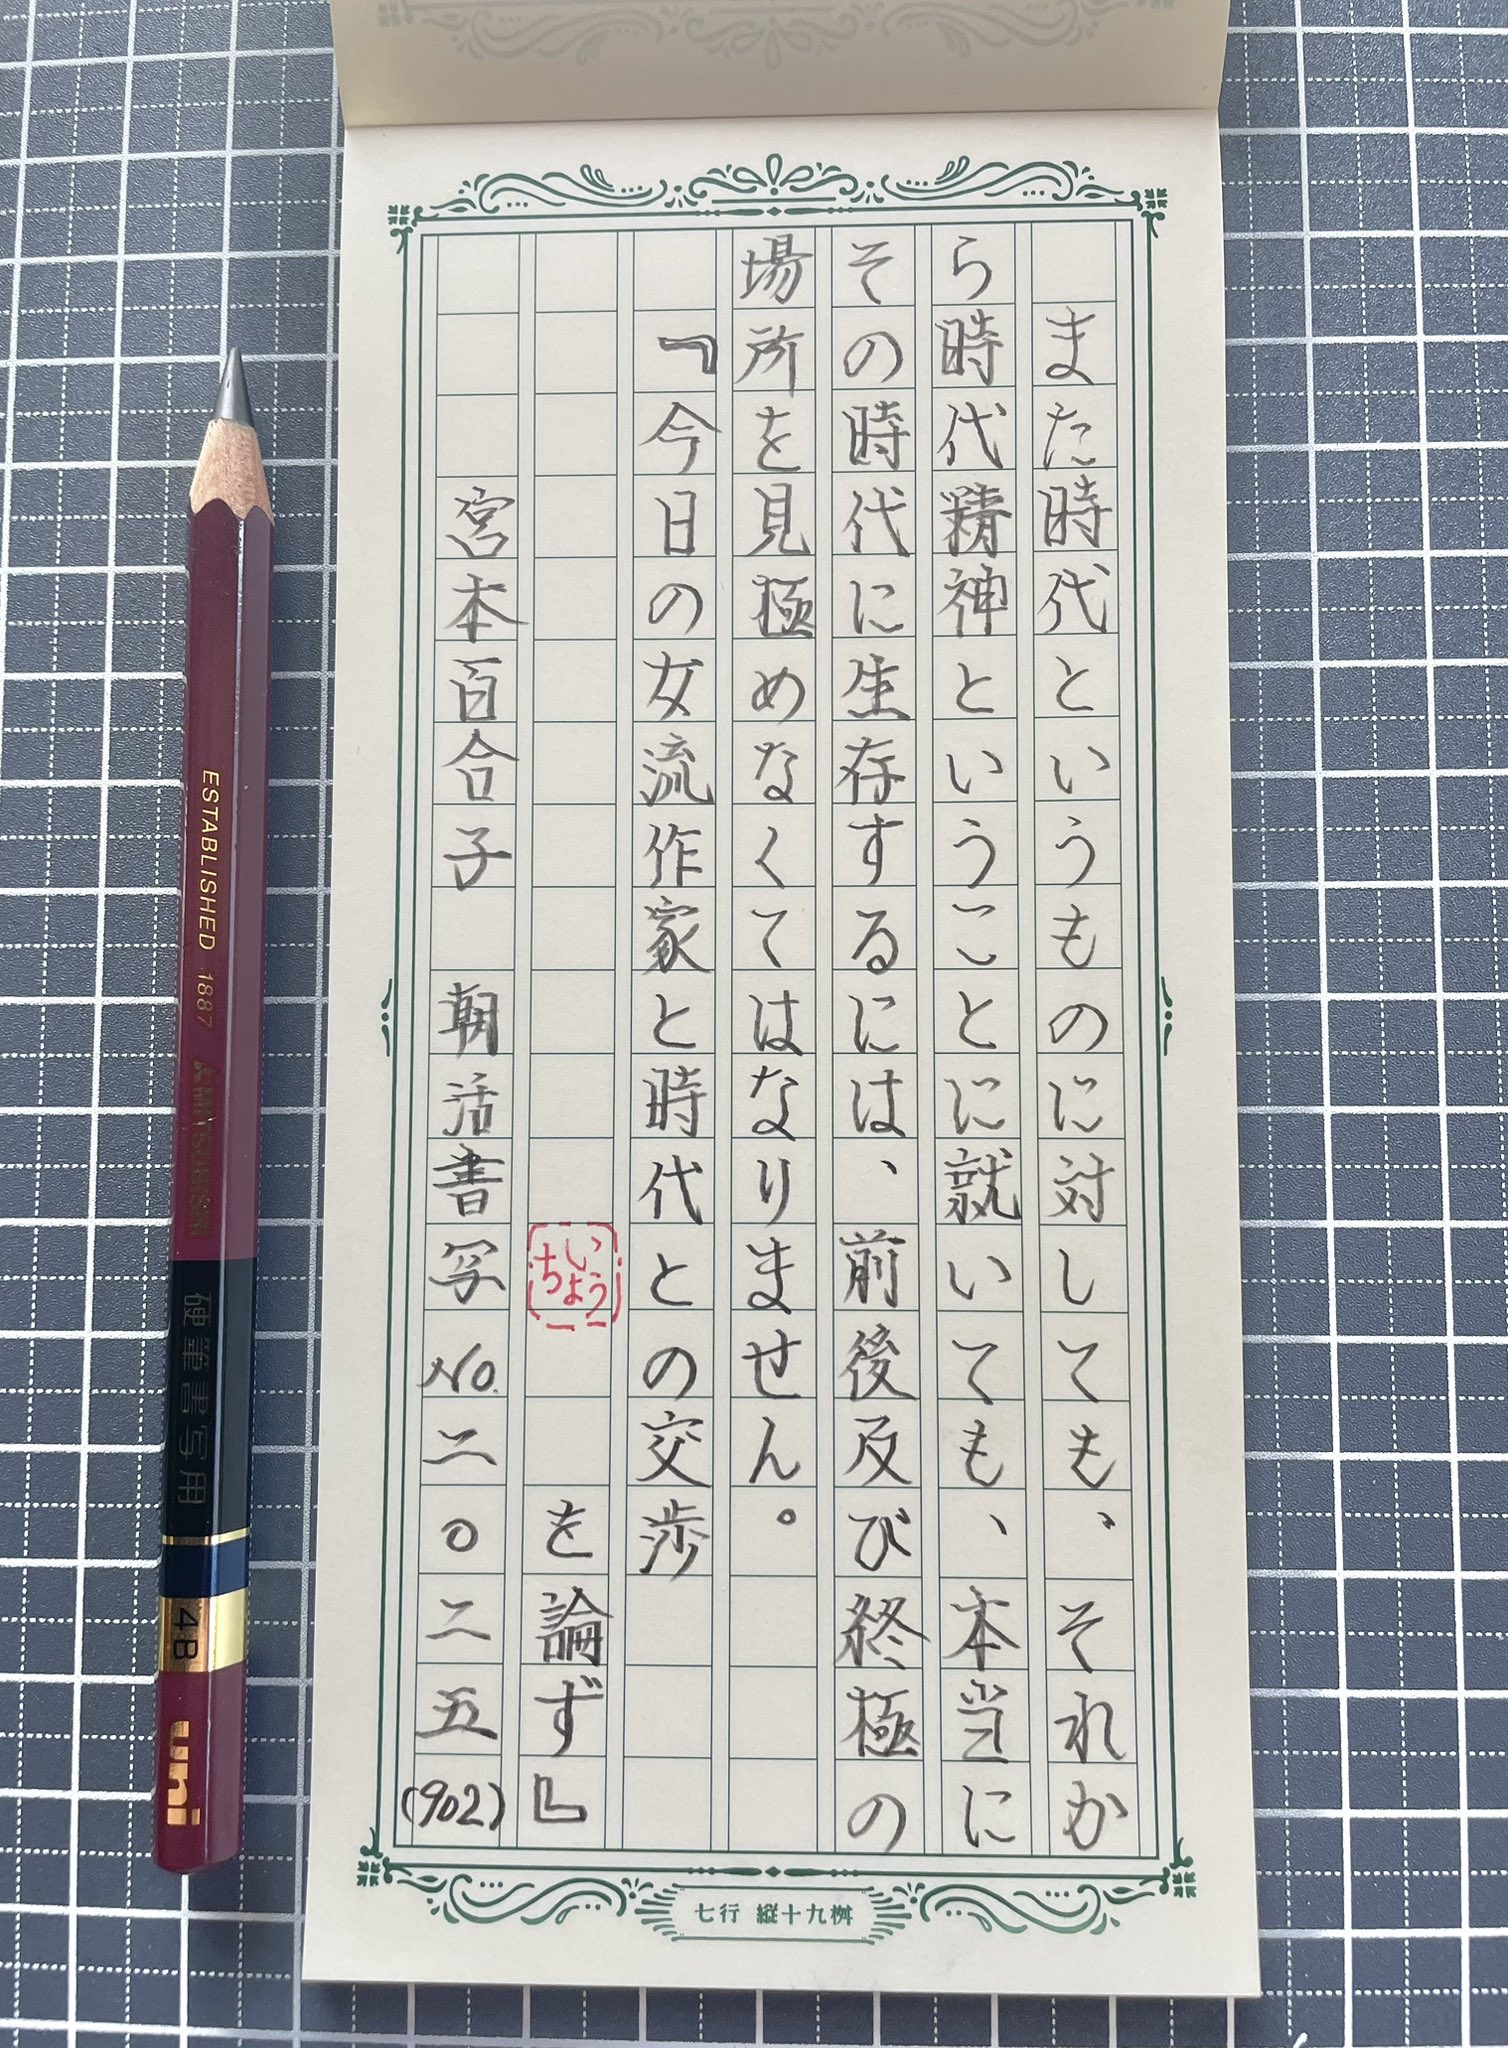 また時代というものに対しても、それか
ら時代精神ということに就いても、本当に
その時代に生存するには、前後及び終極の
場所を見極めなくてはなりません。
『今日の女流作家と時代との交渉
を論ず』
いちょう
宮本百合子 朝活書写No.二〇二五(902)
七行 縦十九桝
ESTABLISHED 1887 MITSUBISHI
硬筆書写用
4B
uni